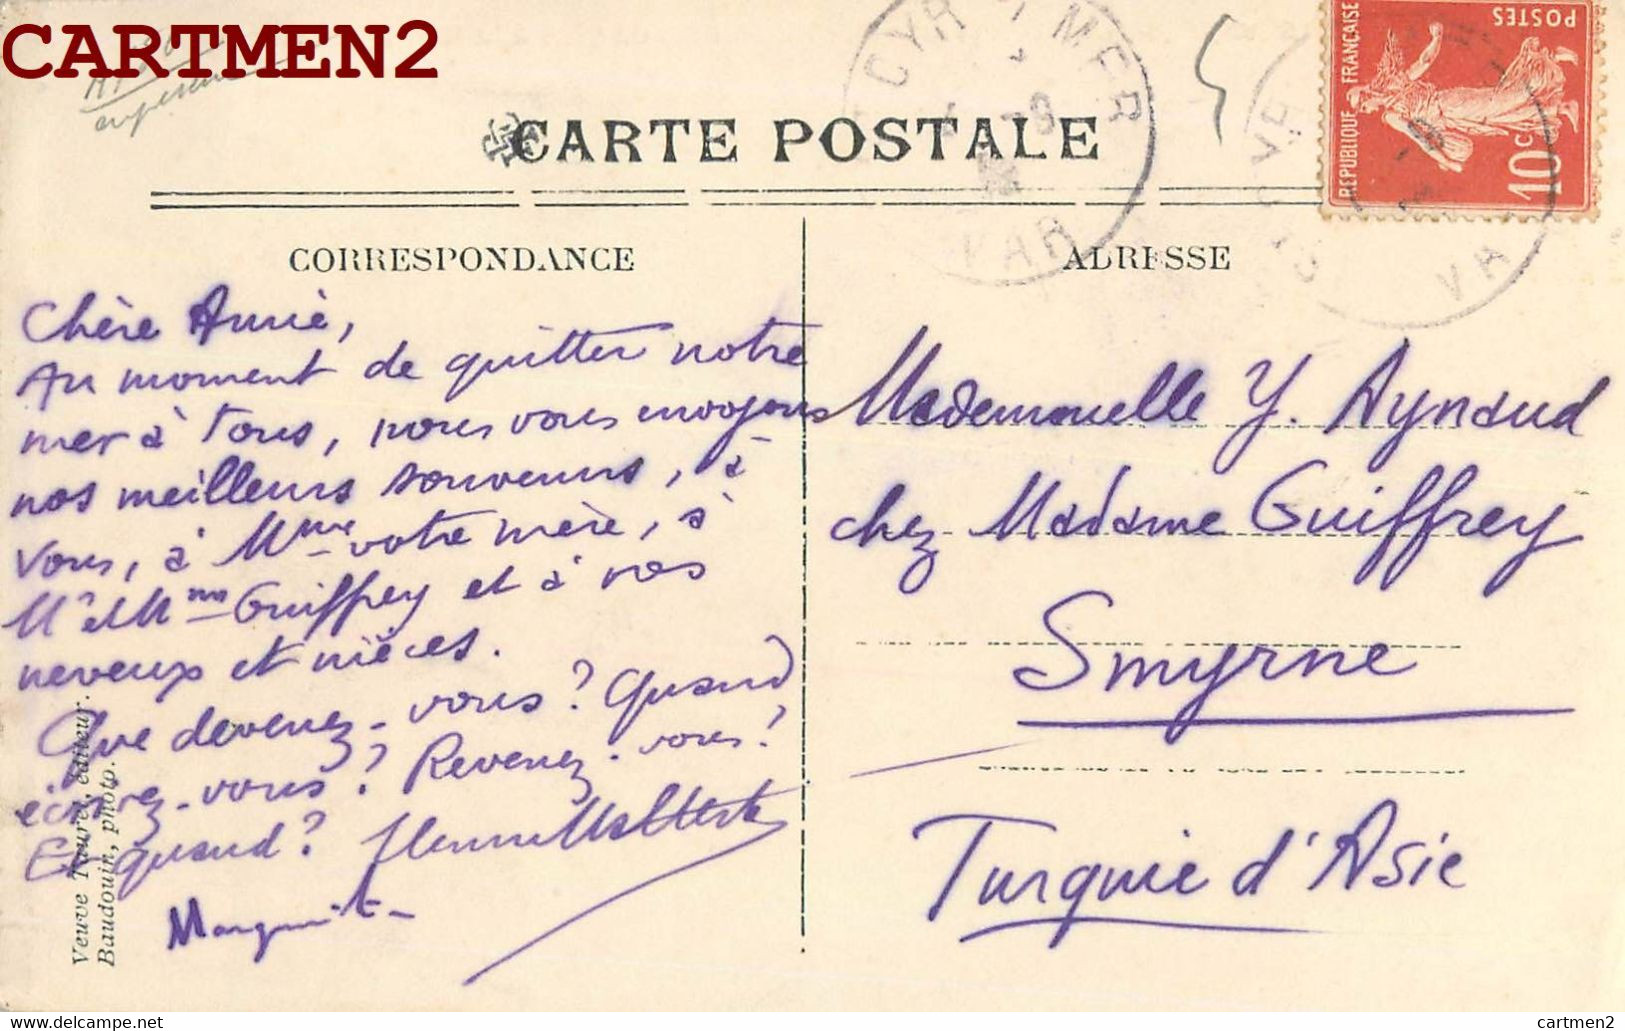 CARTMEN2
CARTE POSTALE
CYR S MER
VAR
REPUBLIQUE FRANÇAISE
POSTES
10c
CORRESPONDANCE
ADRESSE
Chère Amie,
Au moment de quitter notre
mer à tous, nous vous envoyons
nos meilleurs souvenirs, à
vous, à Mme votre mère, à
M et Mme Guiffrey et à vos
neveux et nièces.
Que devenez-vous? Quand
écrivez-vous? Revenez-vous?
Et quand?
Marguerite
Mademoiselle Y. Aynaud
chez Madame Guiffrey
Smyrne
Turquie d'Asie
Veuve Taurel, éditeur.
Baudouin, photo.
www.delcampe.net
cartmen2